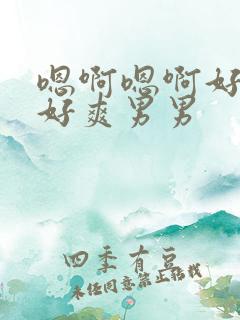 嗯啊嗯啊好
好爽男男
四季有豆
未经同意禁止转载